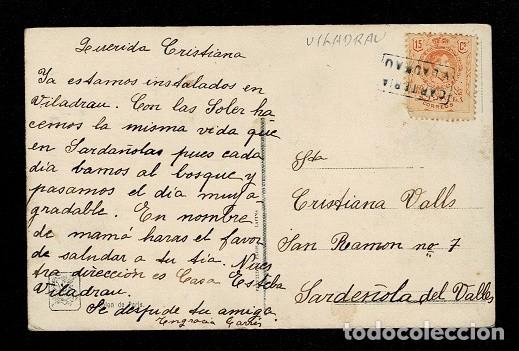 VILADRAU
Querida Cristiana
Ya estamos instalados en
Viladrau. Con las Soler ha-
cemos la misma vida que
en Sardañolas pues cada
día bamos al bosque y
pasamos el día muy a-
gradable. En nombre
de mamá haras el favor
de saludar a tu tía. Nues
tra dirección es Casa Esteba
Viladrau.
Se despide tu amiga
Engracia
15 Cs
CORREOS
CARTERIA
VILADRAU
Sta
Cristiana Valls
San Ramon nº 7
Sardeñola del Valles
todocoleccion.net